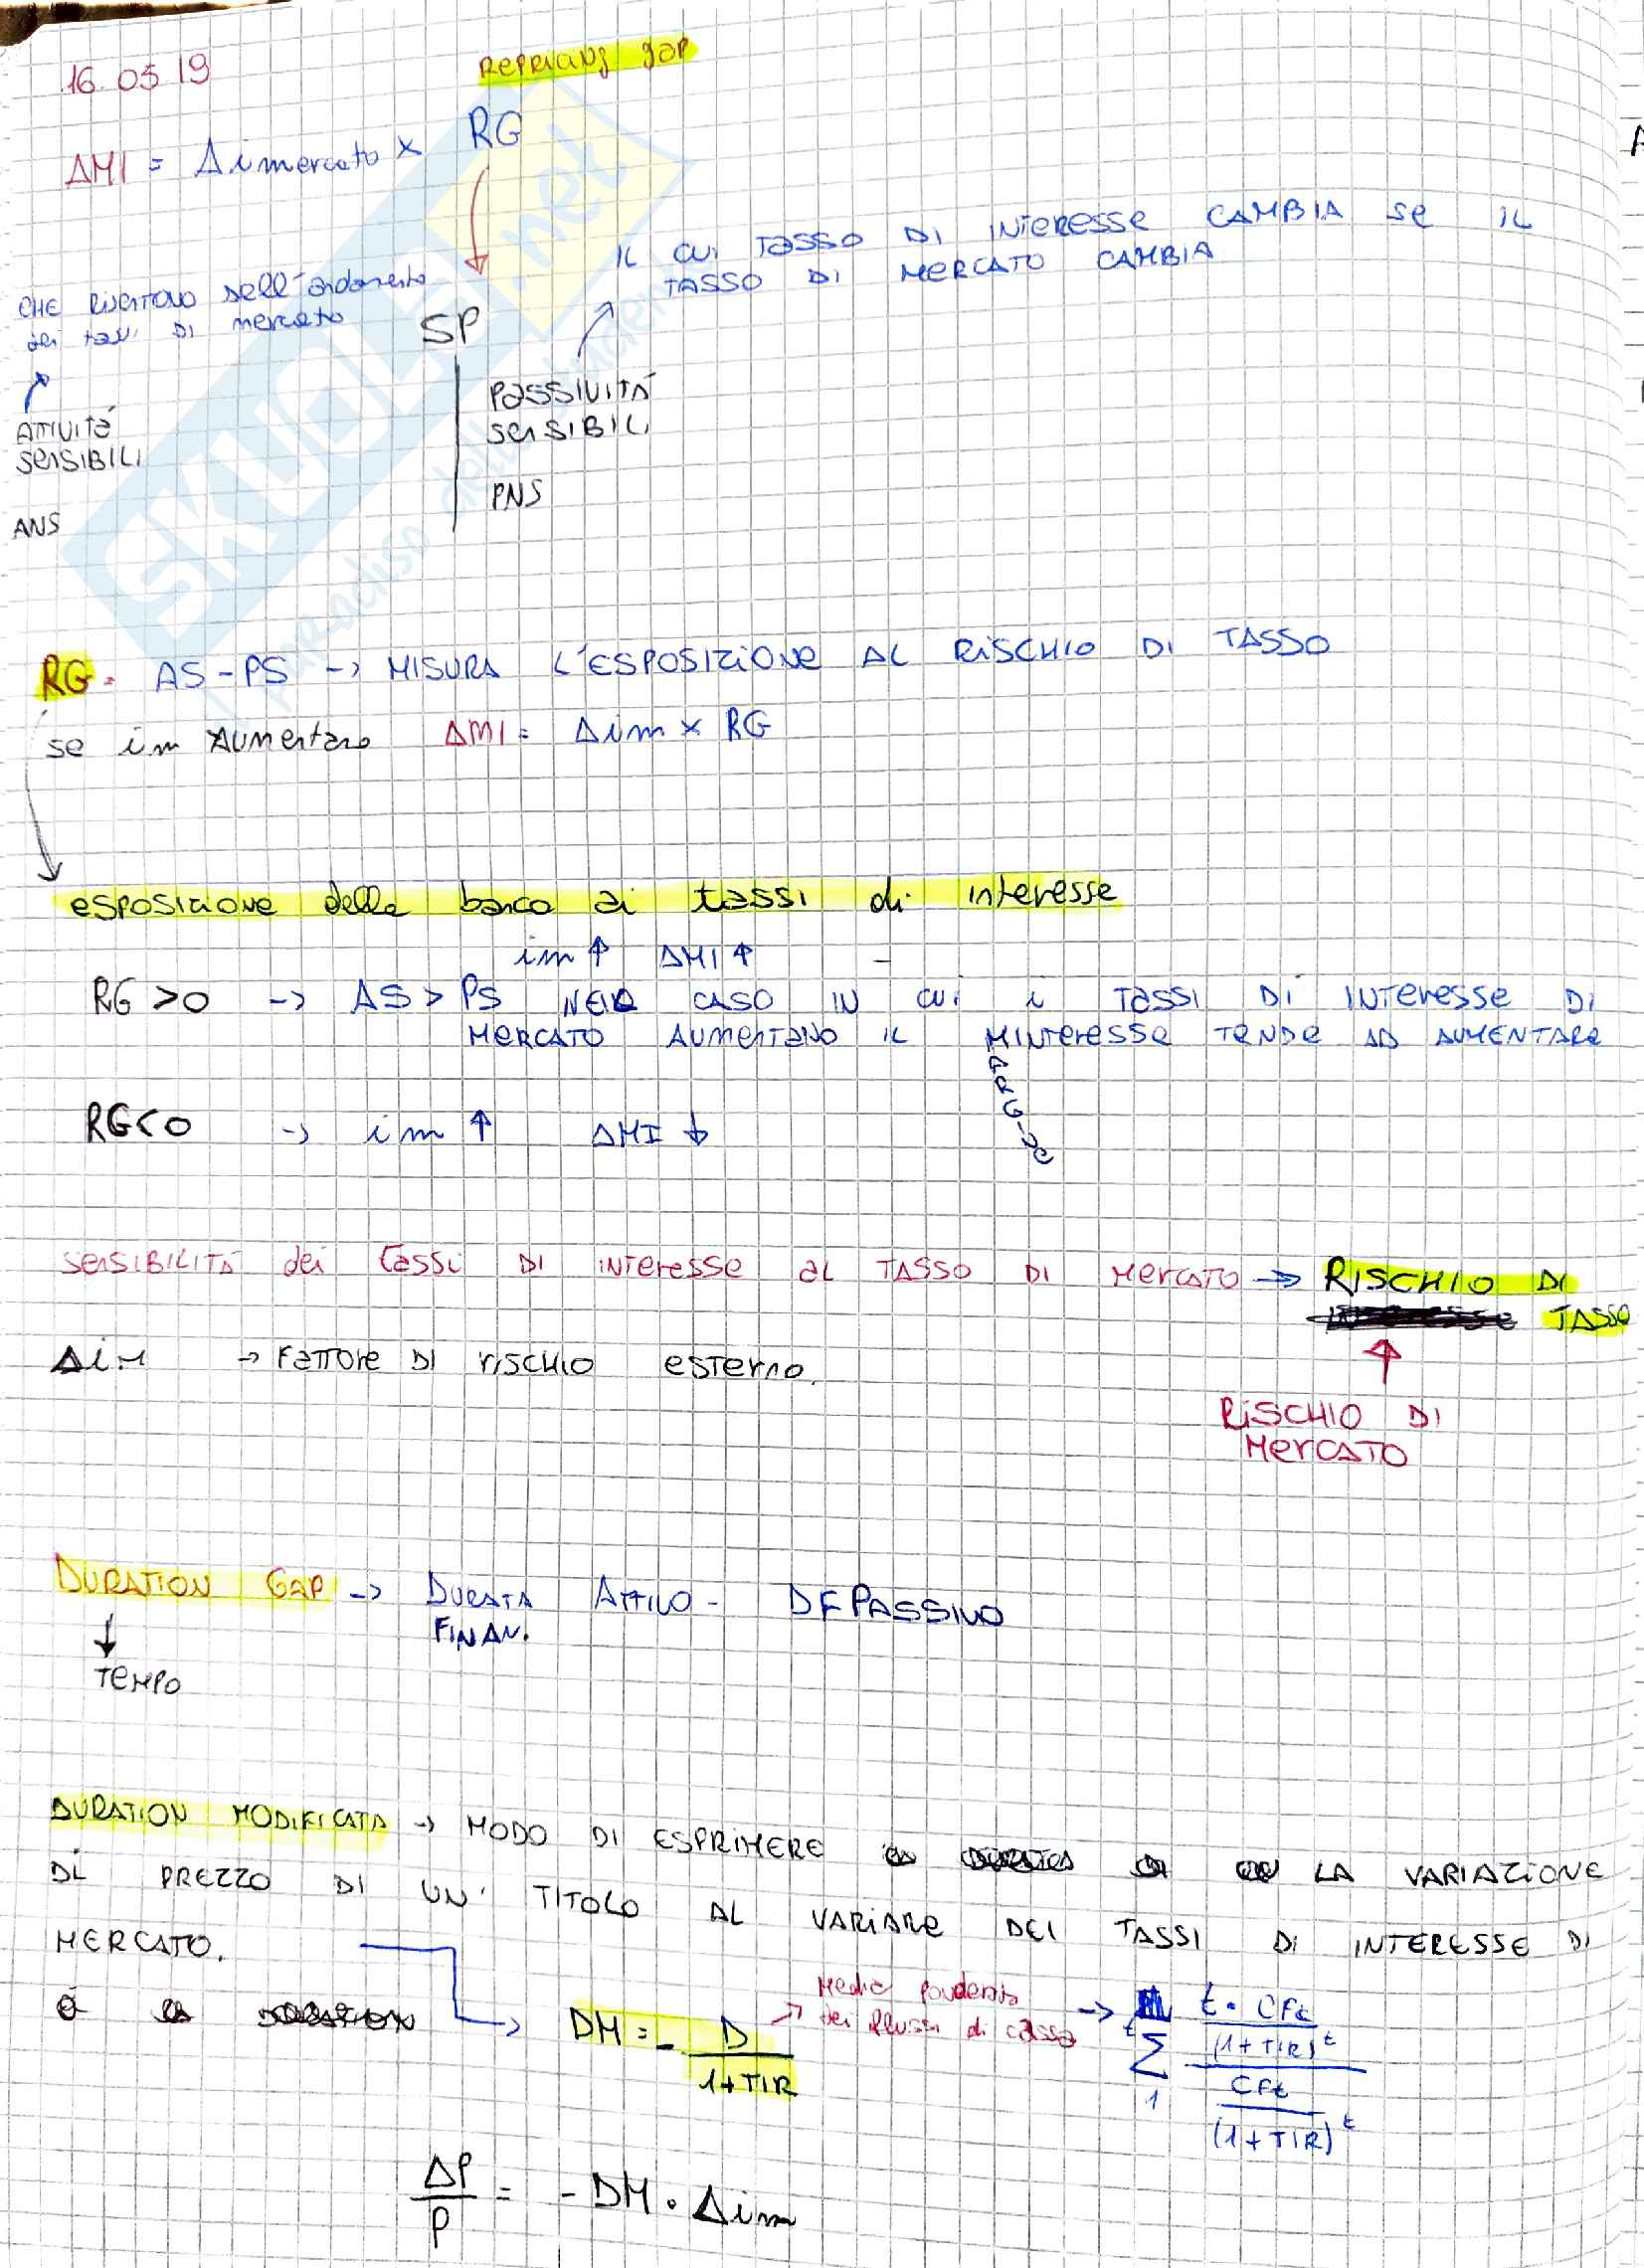 16.05.19
Repricing gap
ΔMI = Δimercato × RG
IL CUI TASSO DI INTERESSE CAMBIA se IL
TASSO DI MERCATO CAMBIA
CHE RISENTONO dell'andamento
dei tassi DI mercato
SP
ATTIVITà
SENSIBILI
PASSIVITà
SENSIBILI
ANS
PNS
SKUOLA.net
il paradiso dello studente
RG = AS - PS -> MISURA L'ESPOSIZIONE AL RISCHIO DI TASSO
se im Aumentano ΔMI = Δim × RG
esposizione della banca ai tassi di interesse
im ↑ ΔMI ↑ -
RG > 0 -> AS > PS NEL CASO IN CUI i TASSI DI INTERESSE DI
MERCATO AUMENTANO IL MINTERESSE TENDE AD AUMENTARE
MARGINE
RG < 0 -> im ↑ ΔMI ↓
SENSIBILITà dei tassi DI INTERESSE al TASSO DI MERCATO -> RISCHIO DI
TASSO
ΔiM -> FATTORE DI RISCHIO ESTERNO.
RISCHIO DI
MERCATO
DURATION GAP -> DURATA ATTIVO - DFPASSIVO
FINAN.
TEMPO
DURATION MODIFICATA -> MODO DI ESPRIMERE LA VARIAZIONE
DI PREZZO DI UN' TITOLO AL VARIARE DEI TASSI DI INTERESSE DI
MERCATO.
DM = - D / 1+TIR
Media ponderata
dei flussi di cassa
-> t Σ 1 t · CFt / (1+TIR)^t / CFt / (1+TIR)^t
ΔP / P = - DM · Δim